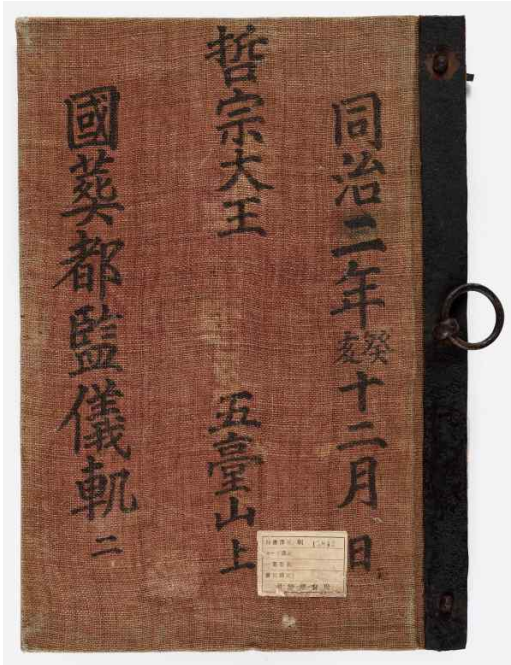 同治二年癸亥十二月 日
哲宗大王 五臺山上
國葬都監儀軌 二